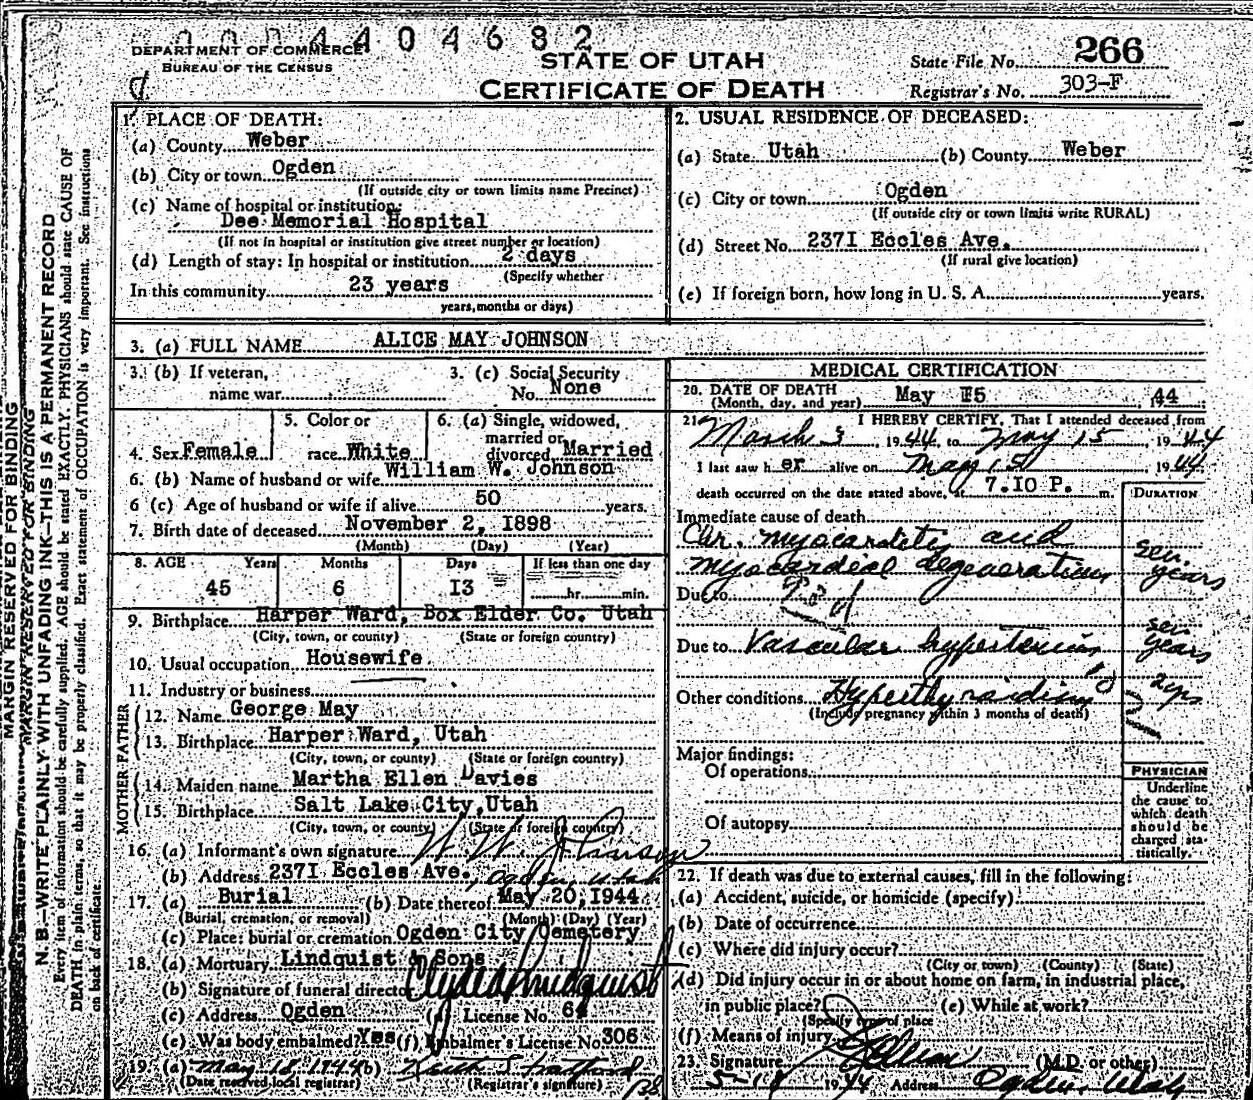 0004404682
DEPARTMENT OF COMMERCE
BUREAU OF THE CENSUS
STATE OF UTAH
CERTIFICATE OF DEATH
State File No. 266
Registrar's No. 303-F
1. PLACE OF DEATH:
(a) County Weber
(b) City or town Ogden
(If outside city or town limits name Precinct)
(c) Name of hospital or institution:
Dee Memorial Hospital
(If not in hospital or institution give street number or location)
(d) Length of stay: In hospital or institution 2 days
(Specify whether
In this community 23 years
years, months or days)
2. USUAL RESIDENCE OF DECEASED:
(a) State Utah (b) County Weber
(c) City or town Ogden
(If outside city or town limits write RURAL)
(d) Street No. 237I Eccles Ave.
(If rural give location)
(e) If foreign born, how long in U. S. A. years.
3. (a) FULL NAME ALICE MAY JOHNSON
3. (b) If veteran, name war
3. (c) Social Security No. None
4. Sex Female
5. Color or race White
6. (a) Single, widowed, married or divorced Married
6. (b) Name of husband or wife William W. Johnson
6 (c) Age of husband or wife if alive 50 years.
7. Birth date of deceased November 2, I898
(Month) (Day) (Year)
8. AGE Years Months Days If less than one day
45 6 I3 hr. min.
9. Birthplace Harper Ward, Box Elder Co. Utah
(City, town, or county) (State or foreign country)
10. Usual occupation Housewife
11. Industry or business
FATHER
12. Name George May
13. Birthplace Harper Ward, Utah
(City, town, or county) (State or foreign country)
MOTHER
14. Maiden name Martha Ellen Davies
15. Birthplace Salt Lake City, Utah
(City, town, or county) (State or foreign country)
16. (a) Informant's own signature W W Johnson
(b) Address 237I Eccles Ave., Ogden Utah
17. (a) Burial (b) Date thereof May 20, 1944
(Burial, cremation, or removal) (Month) (Day) (Year)
(c) Place: burial or cremation Ogden City Cemetery
18. (a) Mortuary Lindquist & Sons
(b) Signature of funeral director Clyde Lindquist
(c) Address Ogden (d) License No. 64
(e) Was body embalmed? Yes (f) Embalmer's License No. 306
19. (a) May 18, 1944 (b) Keith S.
(Date received local registrar) (Registrar's signature)
MEDICAL CERTIFICATION
20. DATE OF DEATH May I5, 44
(Month, day, and year)
21. I HEREBY CERTIFY, That I attended deceased from
March 3, 1944 to May 15, 1944
I last saw her alive on May 15 1944
death occurred on the date stated above, at 7.IO P. m.
DURATION
Immediate cause of death
Chr. myocarditis and
myocardial degeneration sev. years
Due to
Due to Vascular hypertension sev years
Other conditions Hyperthyroidism
(Include pregnancy within 3 months of death)
Major findings:
Of operations
Of autopsy
PHYSICIAN
Underline
the cause to
which death
should be
charged sta-
tistically.
22. If death was due to external causes, fill in the following:
(a) Accident, suicide, or homicide (specify)
(b) Date of occurrence
(c) Where did injury occur?
(City or town) (County) (State)
(d) Did injury occur in or about home on farm, in industrial place,
in public place? (e) While at work?
(Specify type of place
(f) Means of injury
23. Signature (M.D. or other)
1944 Address Ogden, Utah
MARGIN RESERVED FOR BINDING
MARGIN RESERVED FOR BINDING
N. B.—WRITE PLAINLY WITH UNFADING INK—THIS IS A PERMANENT RECORD
Every item of information should be carefully supplied. AGE should be stated EXACTLY. PHYSICIANS should state CAUSE OF
DEATH in plain terms, so that it may be properly classified. Exact statement of OCCUPATION is very important. See instructions
on back of certificate.